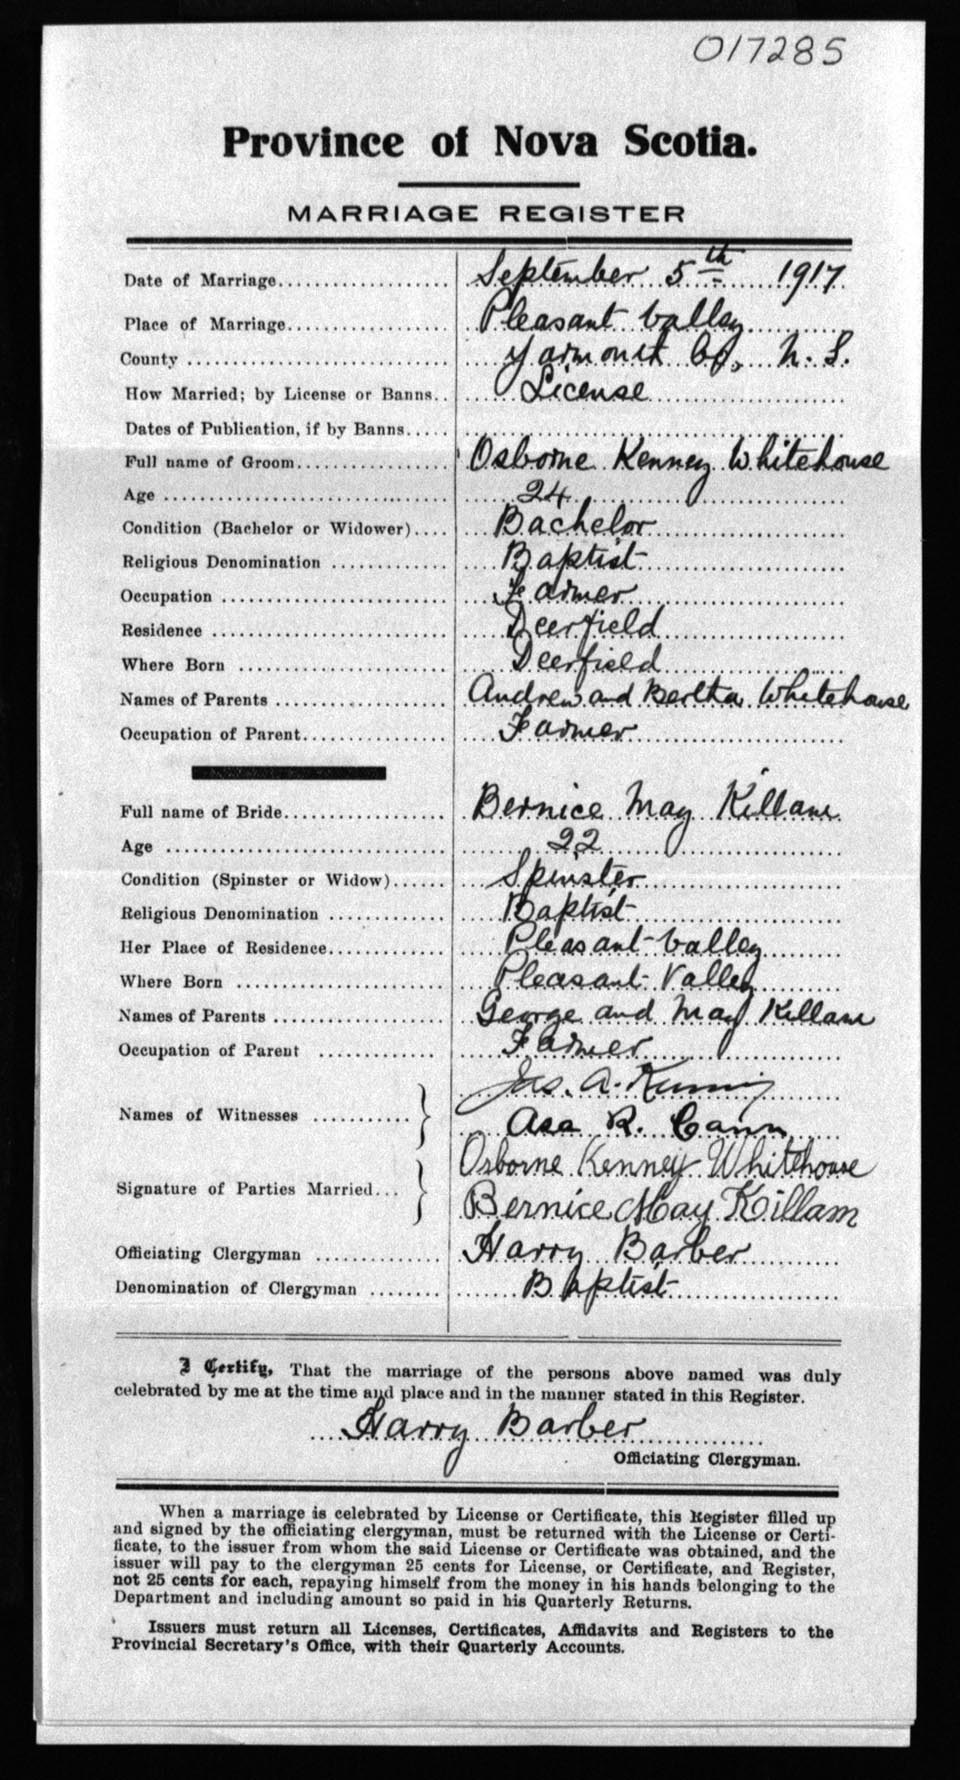 017285
Province of Nova Scotia.
MARRIAGE REGISTER
Date of Marriage.................... September 5th 1917
Place of Marriage.................. Pleasant Valley
County ............................. Yarmouth Co., N. S.
How Married; by License or Banns.. License
Dates of Publication, if by Banns.....
Full name of Groom................. Osborne Kenney Whitehouse
Age ............................... 24
Condition (Bachelor or Widower).... Bachelor
Religious Denomination ............. Baptist
Occupation ......................... Farmer
Residence .......................... Deerfield
Where Born ........................ Deerfield
Names of Parents ................... Andrew and Bertha Whitehouse
Occupation of Parent................ Farmer
Full name of Bride.................. Bernice May Killam
Age ............................... 22
Condition (Spinster or Widow)...... Spinster
Religious Denomination ............. Baptist
Her Place of Residence.............. Pleasant Valley
Where Born ........................ Pleasant Valley
Names of Parents ................... George and May Killam
Occupation of Parent ............. Farmer
Names of Witnesses ........... } Jas. A.
Asa R. Cann
Signature of Parties Married... } Osborne Kenney Whitehouse
Bernice May Killam
Officiating Clergyman .............. Harry Barber
Denomination of Clergyman ........ Baptist
I Certify, That the marriage of the persons above named was duly
celebrated by me at the time and place and in the manner stated in this Register.
Harry Barber
Officiating Clergyman.
When a marriage is celebrated by License or Certificate, this Register filled up
and signed by the officiating clergyman, must be returned with the License or Certi-
ficate, to the issuer from whom the said License or Certificate was obtained, and the
issuer will pay to the clergyman 25 cents for License, or Certificate, and Register,
not 25 cents for each, repaying himself from the money in his hands belonging to the
Department and including amount so paid in his Quarterly Returns.
Issuers must return all Licenses, Certificates, Affidavits and Registers to the
Provincial Secretary's Office, with their Quarterly Accounts.